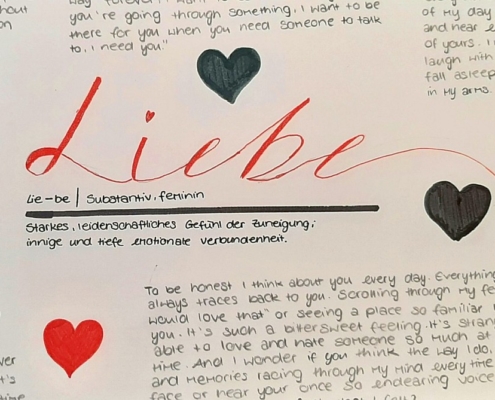 you're going through something, I want to be
there for you when you need someone to talk
to, I need you"
of my day
and hear
of yours. I
laugh with
fall asleep
in my arms.
Liebe
Lie-be | Substantiv, feminin
Starkes, leidenschaftliches Gefühl der Zuneigung;
innige und tiefe emotionale Verbundenheit.
To be honest I think about you every day. Everything
always traces back to you. Scrolling through my
would love that" or seeing a place so familiar
you. It's such a bittersweet feeling. It's
able to love and hate someone so much at
time. And I wonder if you think the way I do.
and memories racing through my mind every time
face or hear your once so endearing voice